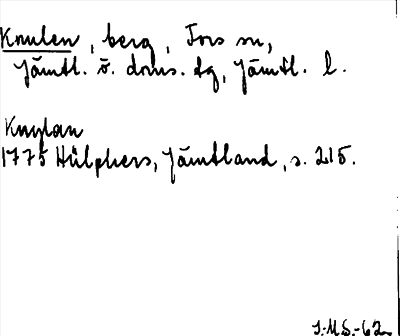 Knulen, berg, Fors sn,
Jämtl. ö. doms. tg, Jämtl. l.
Knylan
1775 Hülphers, Jämtland, s. 215.
J.M.S.-62